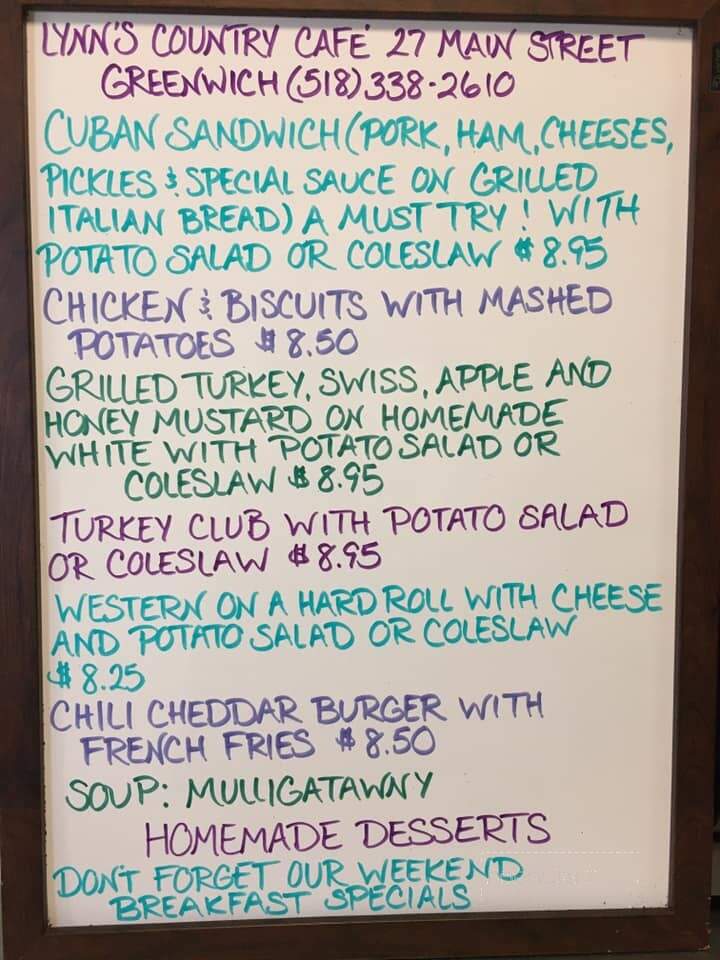 LYNN'S COUNTRY CAFE' 27 MAIN STREET
GREENWICH (518) 338-2610
CUBAN SANDWICH (PORK, HAM, CHEESES,
PICKLES & SPECIAL SAUCE ON GRILLED
ITALIAN BREAD) A MUST TRY! WITH
POTATO SALAD OR COLESLAW $8.95
CHICKEN & BISCUITS WITH MASHED
POTATOES $8.50
GRILLED TURKEY, SWISS, APPLE AND
HONEY MUSTARD ON HOMEMADE
WHITE WITH POTATO SALAD OR
COLESLAW $8.95
TURKEY CLUB WITH POTATO SALAD
OR COLESLAW $8.95
WESTERN ON A HARD ROLL WITH CHEESE
AND POTATO SALAD OR COLESLAW
$8.25
CHILI CHEDDAR BURGER WITH
FRENCH FRIES $8.50
SOUP: MULLIGATAWNY
HOMEMADE DESSERTS
DON'T FORGET OUR WEEKEND
BREAKFAST SPECIALS